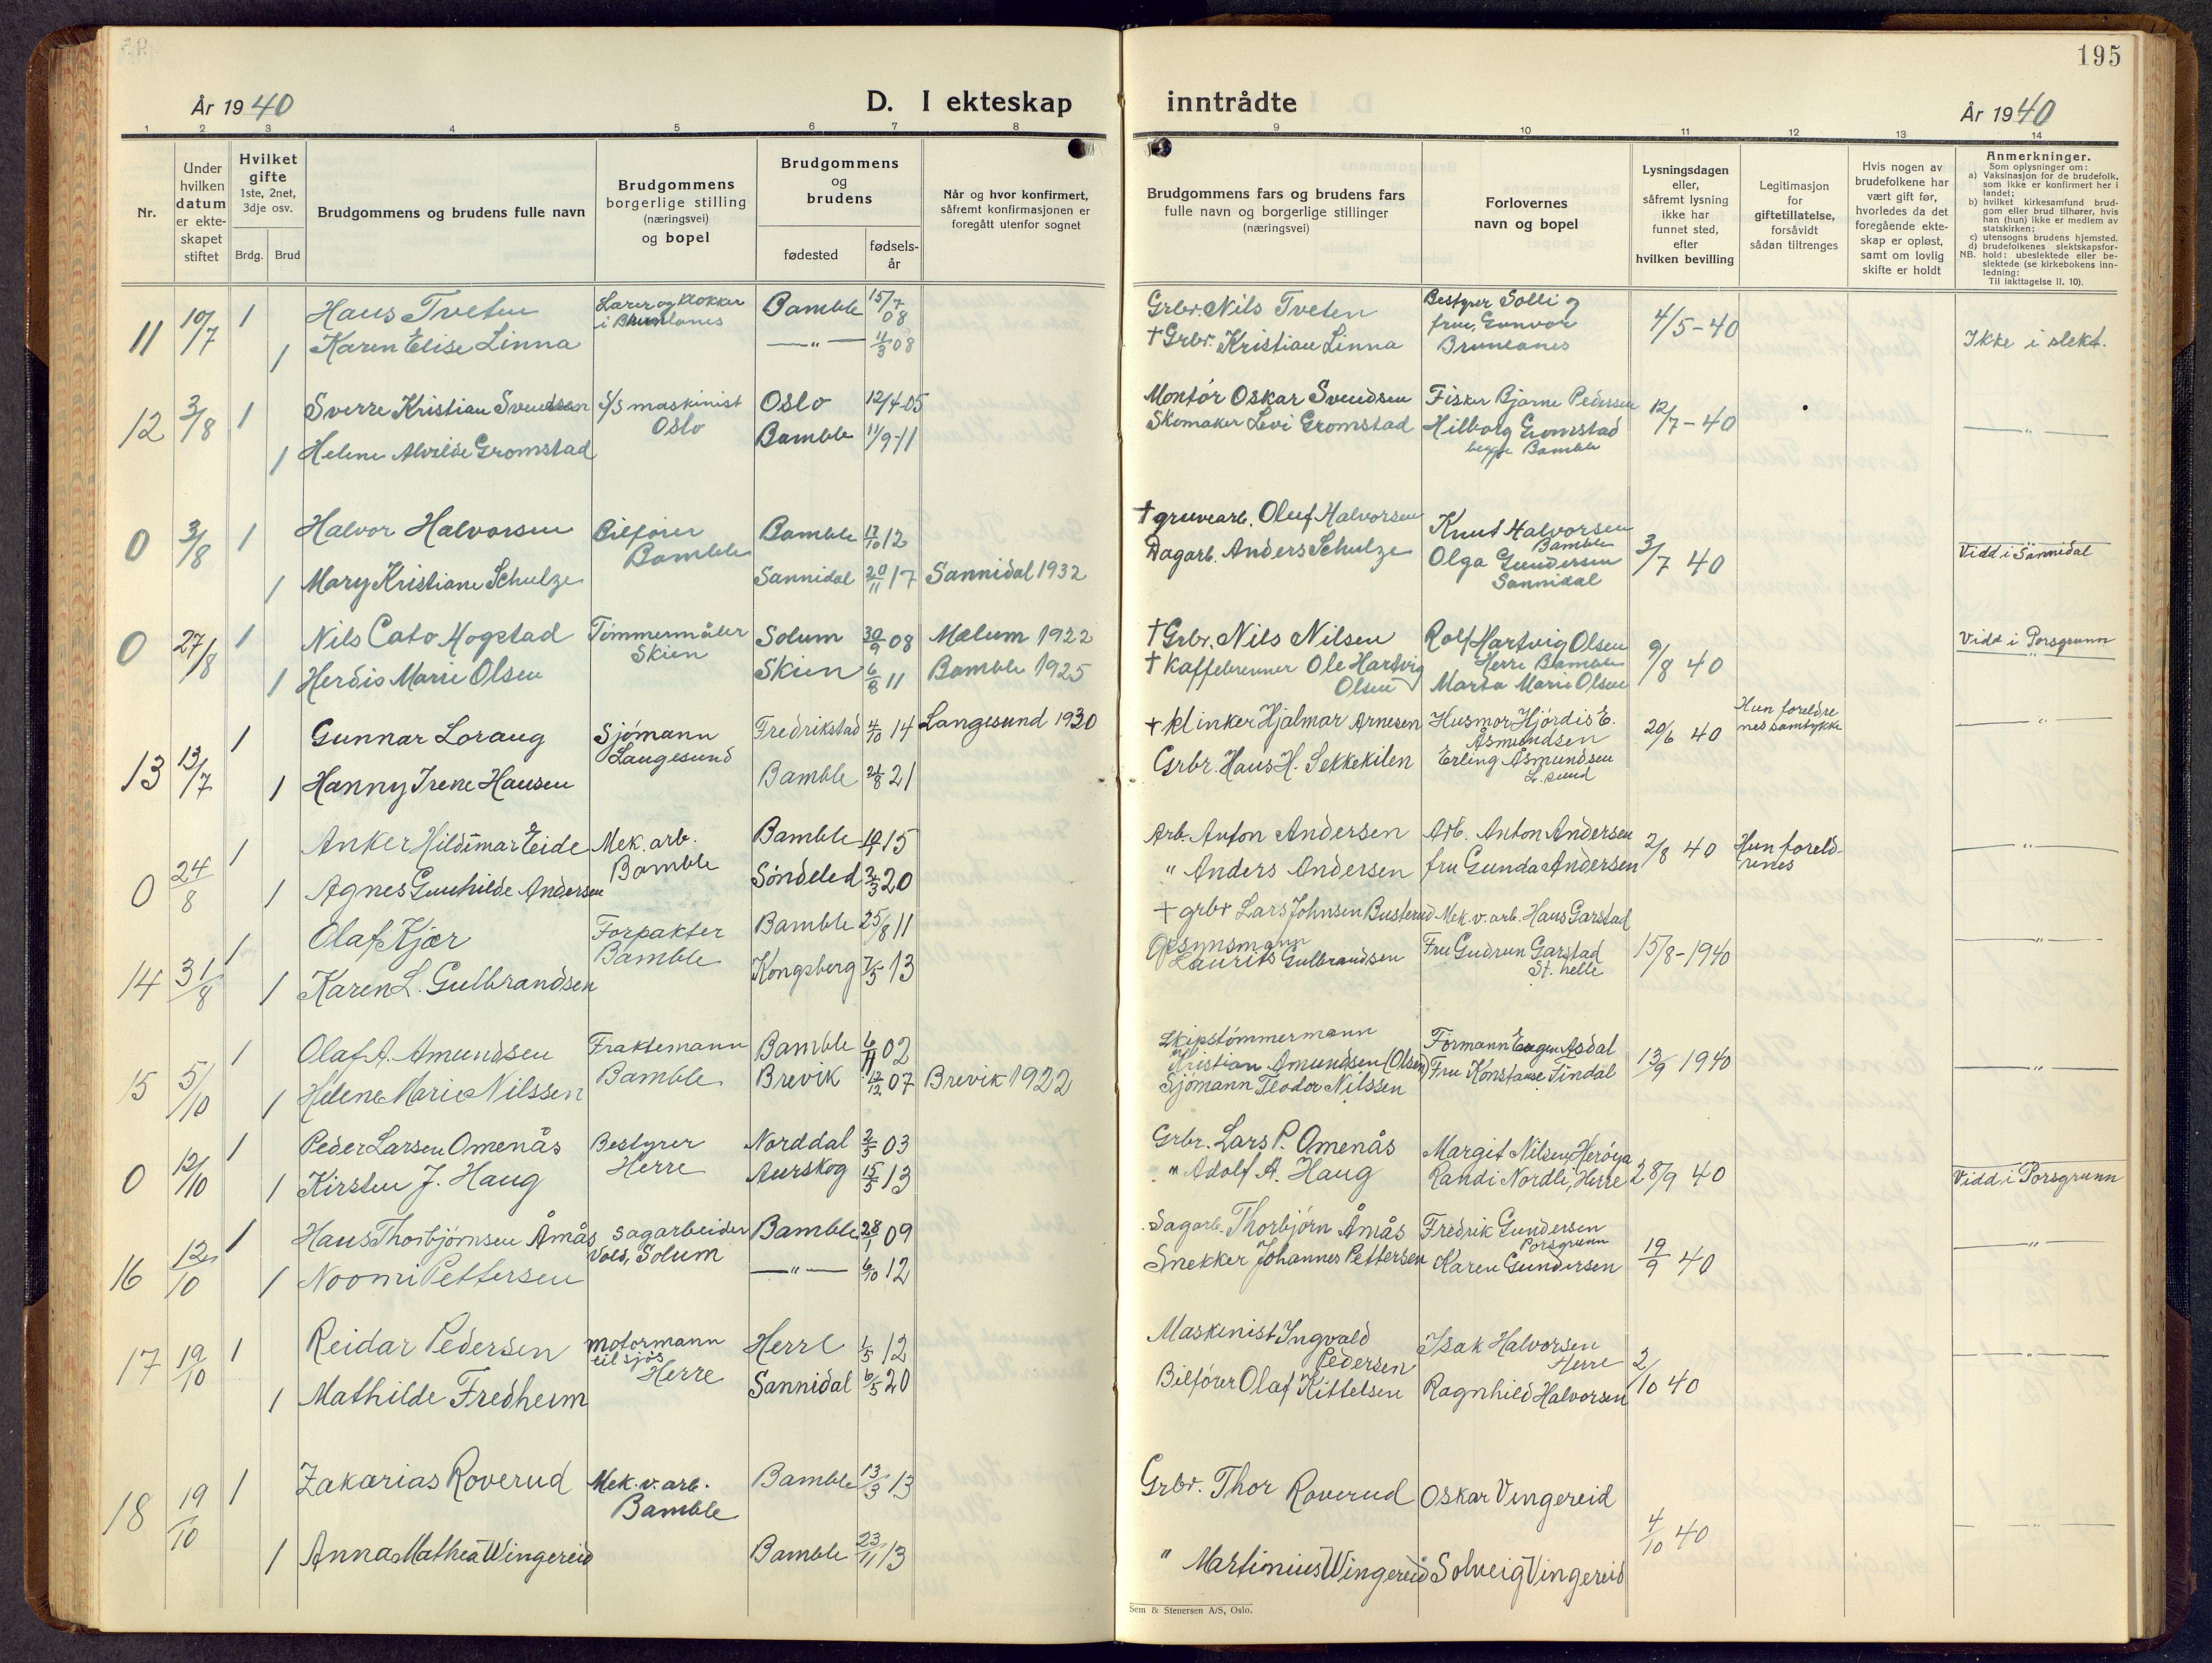 195
År 1940
D. I ekteskap
inntrådte
År 1940
1 2 3 4 5 6 7 8 9 10 11 12 13 14
Nr.
Under
hvilken
datum
er ekte-
skapet
stiftet
Hvilket
gifte
1ste, 2net,
3dje osv.
Brdg. Brud
Brudgommens og brudens fulle navn
Brudgommens
borgerlige stilling
(næringsvei)
og bopel
Brudgommens
og
brudens
fødested
fødsels-
år
Når og hvor konfirmert,
såfremt konfirmasjonen er
foregått utenfor sognet
Brudgommens fars og brudens fars
fulle navn og borgerlige stillinger
(næringsvei)
Forlovernes
navn og bopel
Lysningsdagen
eller,
såfremt lysning
ikke har
funnet sted,
efter
hvilken bevilling
Legitimasjon
for
giftetillatelse,
forsåvidt
sådan tiltrenges
Hvis nogen av
brudefolkene har
vært gift før,
hvorledes da det
foregående ekte-
skap er opløst,
samt om lovlig
skifte er holdt
Anmerkninger.
Som oplysninger om:
a) Vaksinasjon for de brudefolk,
som ikke er konfirmert her i
landet;
b) hvilket kirkesamfund brud-
gom eller brud tilhører, hvis
han (hun) ikke er medlem av
statskirken;
c) utensogns brudens hjemsted.
d) brudefolkenes slektskapsfor-
NB. hold: ubeslektede eller be-
slektede (se kirkebokens inn-
ledning:
Til iakttagelse II. 10).
11 10/7 1 Hans Tveten Lærer og klokker i Brunlanes Bamble 15/7 08 Grbr. Nils Tveten Bestyrer Solli og 4/5-40 Ikke i slekt.
1 Karen Elise Linna —"— 11/3 08 † Grbr. Kristian Linna frue, Gunvor Brunlanes
12 3/8 1 Sverre Kristian Svendsen S/S maskinist Oslo Oslo 12/4-05 Montör Oskar Svendsen Fisker Bjarne Pedersen 12/7-40 —"—
1 Helene Alvilde Gromstad Bamble 11/9-11 Skomaker Levi Gromstad Hilborg Gromstad begge Bamble
0 3/8 1 Halvor Halvorsen Bilförer Bamble Bamble 17/10 12 † gruvearb. Oluf Halvorsen Knut Halvorsen Bamble 3/7 40 Vidd i Sannidal
1 Mary Kristiane Schulze Sannidal 20/11 17 Sannidal 1932 Dagarb. Anders Schulze Olga Gundersen Sannidal
0 27/8 1 Nils Cato Hogstad Tömmermåler Skien Solum 30/9 08 Mælum 1922 † Grbr. Nils Nilsen Rolf Hartvig Olsen Herre Bamble 9/8 40 Vidd i Porsgrunn
1 Herdis Marie Olsen Skien 6/8 11 Bamble 1925 † Kaffebrenner Ole Hartvig Olsen Marta Marie Olsen
13 13/7 1 Gunnar Loraug Sjömann Langesund Fredrikstad 4/10 14 Langesund 1930 † klinker Hjalmar Arnesen Husmor Hjördis E. Åsmundsen 20/6 40 Hun foreldre nes samtykke —"—
1 Hanny Irene Hansen Bamble 21 Grbr. Hans H. Sekkekilen Erling Åsmundsen L.sund
0 24/8 1 Anker Hildemar Eide Mek. arb. Bamble Bamble 15 Arb. Anton Andersen Arb. Anton Andersen 2/8 40 Hun foreld- renes —"—
1 Agnes Gunhilde Andersen Söndeled 20 " Anders Andersen fru Gunda Andersen
14 31/8 1 Olaf Kjær Forpakter Bamble Bamble 25/8 11 † grbr Lars Johnsen Busterud Mek. v. arb. Hans Garstad 15/8-1940 —"—
1 Karen L. Gulbrandsen Kongsberg 7/5 13 Opsynsmann Laurits Gulbrandsen Fru Gudrun Garstad St. helle
15 5/10 1 Olaf A. Amundsen Fraktemann Bamble Bamble 6/11 02 Skipstömmermann Kristian Amundsen (Olsen) Formann Eugen Asdal 13/9 1940 —"—
1 Helene Marie Nilssen Brevik 12/12 07 Brevik 1922 Sjömann Teodor Nilssen Fru Konstanse Findal
0 12/10 1 Peder Larsen Omenås Bestyrer Herre Norddal 3/5 03 Grbr. Lars P. Omenås Margit Nilsen Heröya 28/9 40 Vidd i Porsgrunn
1 Kirsten J. Haug Aurskog 15/5 13 " Adolf A. Haug Randi Nordli, Herre
16 12/10 1 Hans Thorbjörnsen Åmås sagarbeider Vold, Solum Bamble 28/1 09 Sagarb. Thorbjörn Åmås Fredrik Gundersen Porsgrunn 19/9 40 —"—
1 Noomi Pettersen —"— 6/10 12 Snekker Johannes Pettersen Karen Gundersen
17 19/10 1 Reidar Pedersen motormann til sjös Herre Herre 1/5 12 Maskinist Ingvald Pedersen Isak Halvorsen Herre 2/10 40 —"—
1 Mathilde Fredheim Sannidal 6/5 20 Bilförer Olaf Kittelsen Ragnhild Halvorsen
18 19/10 1 Zakarias Roverud Mek. v. arb. Bamble Bamble 13/3 13 Grbr. Thor Roverud Oskar Vingereid 4/10 40 —"—
1 Anna Mathea Wingereid Bamble 23/11 13 " Martinius Wingereid Solveig Vingereid
Sem & Stenersen A/S, Oslo.